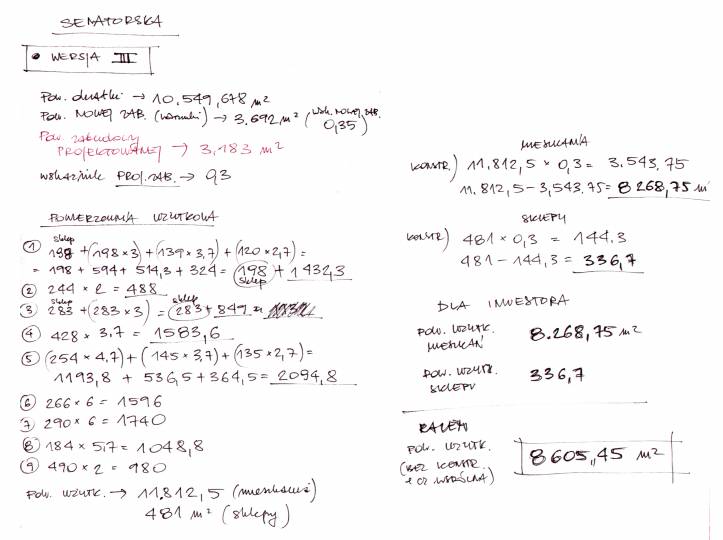 SENATORSKA
• WERSJA III
Pow. działki → 10.549,678 m²
Pow. NOWEJ ZAB. (warunki) → 3.692, m² (wsk. NOWEJ ZAB. 0,35)
Pow. zabudowy
PROJEKTOWANEJ → 3.183 m²
wskaźnik PROJ. ZAB. → 0,3
POWIERZCHNIA UŻYTKOWA
sklep
① 198 + (198 × 3) + (139 × 3,7) + (120 × 2,7) =
= 198 + 594 + 514,3 + 324 = 198 + 1432,3
sklep
② 244 × 2 = 488
sklep sklep
③ 283 + (283 × 3) = 283 + 849 =
④ 428 × 3,7 = 1583,6
⑤ (254 × 4,7) + (145 × 3,7) + (135 × 2,7) =
1193,8 + 536,5 + 364,5 = 2094,8
⑥ 266 × 6 = 1596
⑦ 290 × 6 = 1740
⑧ 184 × 5,7 = 1048,8
⑨ 490 × 2 = 980
Pow. użytk. → 11.812,5 (mieszkania)
481 m² (sklepy)
MIESZKANIA
KONSTR.) 11.812,5 × 0,3 = 3.543,75
11.812,5 - 3,543,75 = 8268,75 m²
SKLEPY
KONSTR) 481 × 0,3 = 144,3
481 - 144,3 = 336,7
DLA INWESTORA
POW. UŻYTK. 8.268,75 m²
MIESZKAŃ
POW. UŻYTK. 336,7
SKLEPY
RAZEM
POW. UŻYTK. 8605,45 m²
(BEZ KONSTR.
I CZ WSPÓLNA)